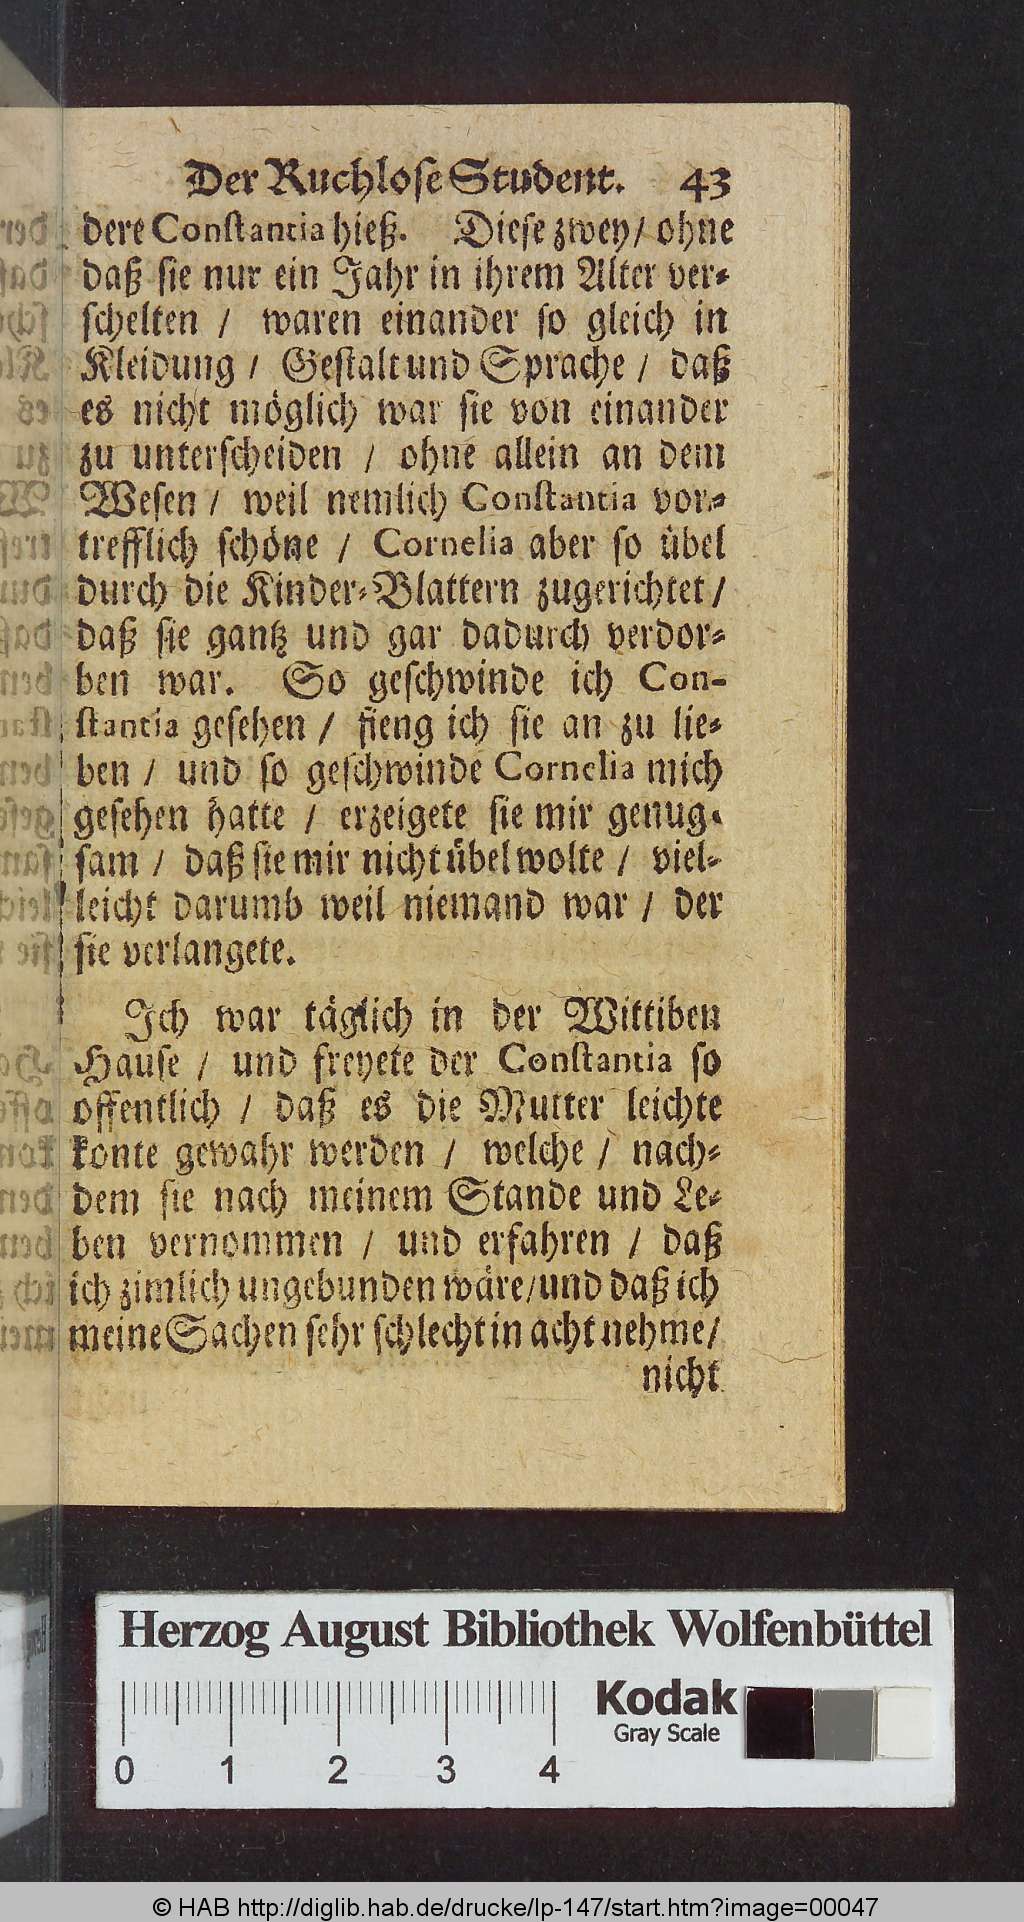 Der Ruchlose Student. 43
dere Constantia hieß. Diese zwey / ohne
daß sie nur ein Jahr in ihrem Alter ver-
schelten / waren einander so gleich in
Kleidung / Gestalt und Sprache / daß
es nicht möglich war sie von einander
zu unterscheiden / ohne allein an dem
Wesen / weil nemlich Constantia vor-
trefflich schöne / Cornelia aber so übel
durch die Kinder-Blattern zugerichtet /
daß sie gantz und gar dadurch verdor-
ben war. So geschwinde ich Con-
stantia gesehen / fieng ich sie an zu lie-
ben / und so geschwinde Cornelia mich
gesehen hatte / erzeigete sie mir genug-
sam / daß sie mir nicht übel wolte / viel-
leicht darumb weil niemand war / der
sie verlangete.
Ich war täglich in der Wittiben
Hause / und freyete der Constantia so
offentlich / daß es die Mutter leichte
konte gewahr werden / welche / nach-
dem sie nach meinem Stande und Le-
ben vernommen / und erfahren / daß
ich zimlich ungebunden wäre / und daß ich
meine Sachen sehr schlecht in acht nehme /
nicht
Herzog August Bibliothek Wolfenbüttel
Kodak
Gray Scale
0 1 2 3 4
© HAB http://diglib.hab.de/drucke/lp-147/start.htm?image=00047